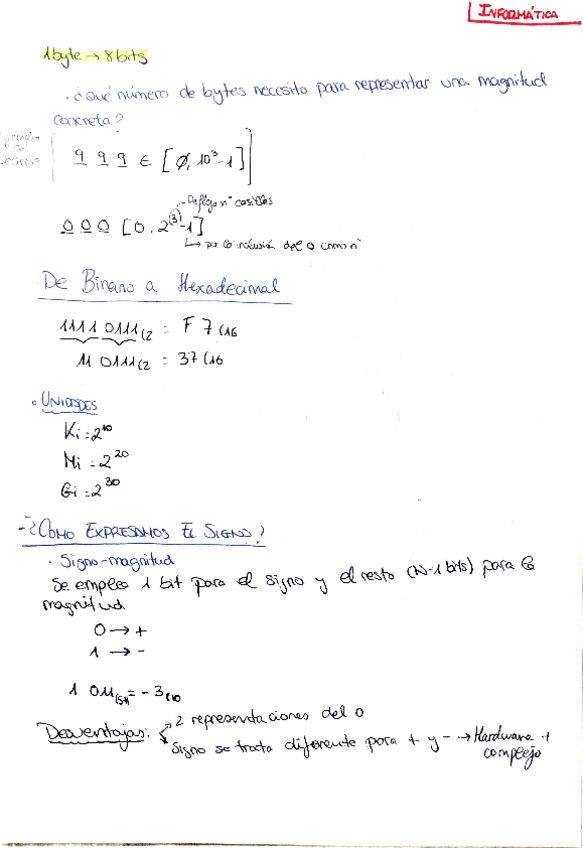 INFORMÁTICA
1 byte → 8 bits
· ¿Qué número de bytes necesito para representar una magnitud
concreta?
Ejemplo
en
Decimal
9 9 9 ∈ [0, 10³-1]
Reflejo nº casillas
0 0 0 [0, 2³-1]
↳ por la inclusión del 0 como nº
De Binario a Hexadecimal
1111 0111(2 = F7(16
11 0111(2 = 37(16
· UNIDADES
Ki = 2¹⁰
Mi = 2²⁰
Gi = 2³⁰
- ¿COMO EXPRESAMOS EL SIGNO?
· Signo-magnitud
Se emplea 1 bit para el signo y el resto (N-1 bits) para la
magnitud
0 → +
1 → -
1 011(SM = -3(10
Desventajas: 2 representaciones del 0
Signo se trata diferente para + y - → Hardware +
complejo